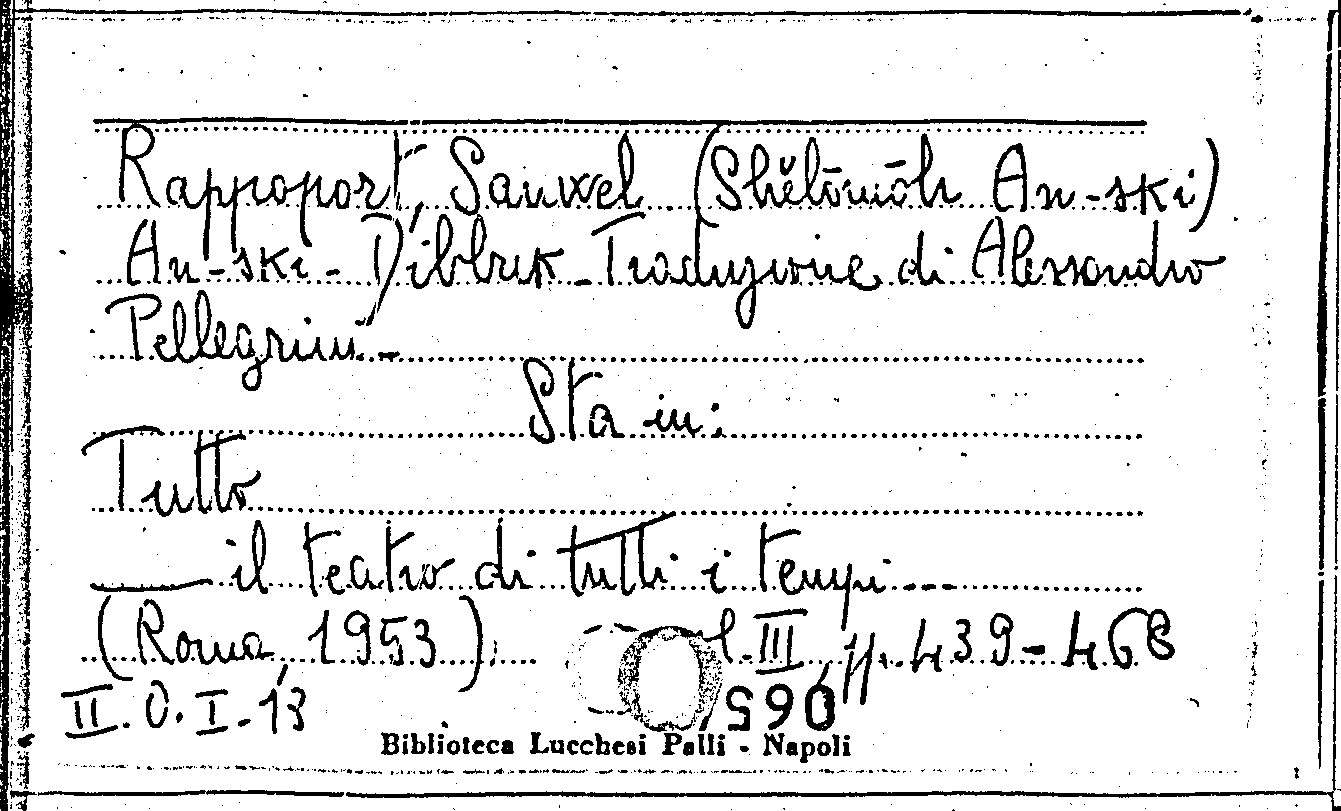 Rappoport, Sanwel (Shĕlōmōh An-ski)
An-ski - Dibbuk - Traduzione di Alessandro
Pellegrini. -
Sta in:
Tutto
___ il teatro di tutti i tempi ...
(Roma, 1953); l. III, pp. 439-468
II. O. I - 13
065
Biblioteca Lucchesi Palli - Napoli